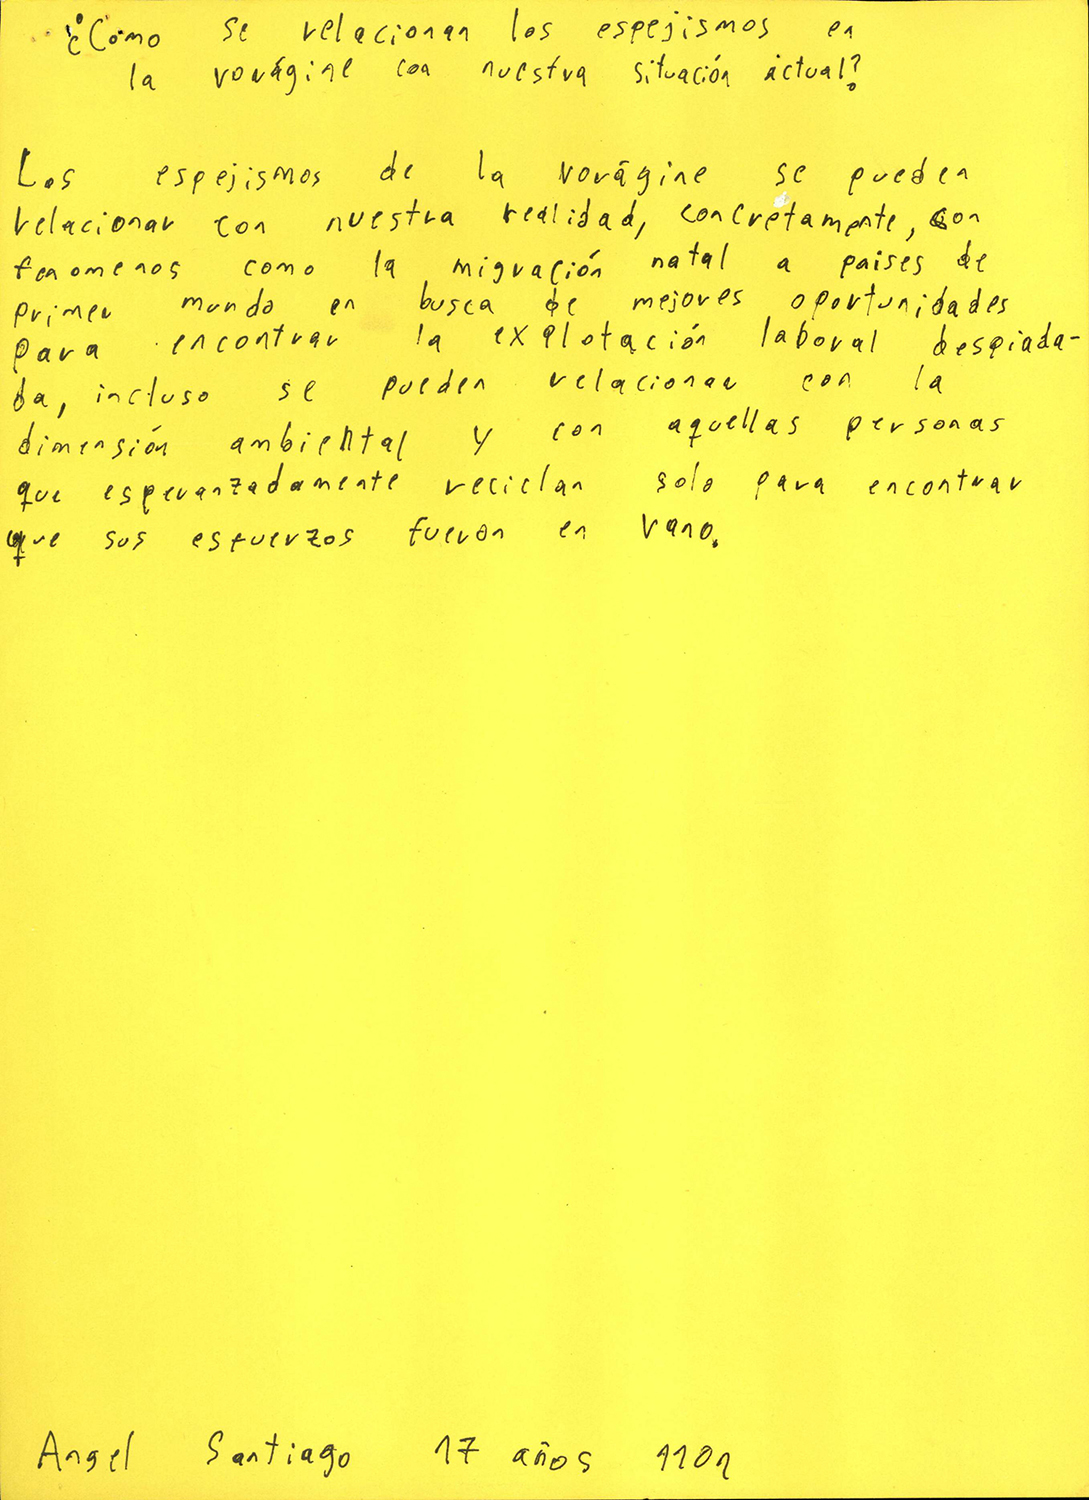 ¿Cómo se relacionan los espejismos en
la vorágine con nuestra situación actual?
Los espejismos de la vorágine se pueden
relacionar con nuestra realidad, concretamente, con
fenomenos como la migración natal a paises de
primer mundo en busca de mejores oportunidades
para encontrar la explotación laboral despiada-
da, incluso se pueden relacionar con la
dimensión ambiental y con aquellas personas
que esperanzadamente reciclan solo para encontrar
que sus esfuerzos fueron en vano.
Angel Santiago 17 años 1101